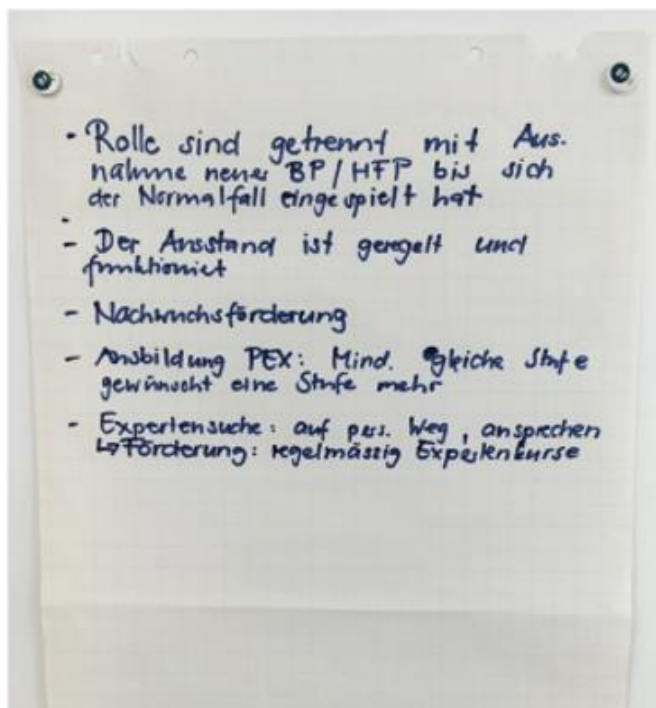 - Rolle sind getrennt mit Aus-
nahme neuer BP/HFP bis sich
der Normalfall eingespielt hat
-
- Der Ausstand ist geregelt und
funktioniet
- Nachwuchsförderung
- Ausbildung PEX: Mind. gleiche Stufe
gewünscht eine Stufe mehr
- Expertensuche: auf pers. Weg, ansprechen
↳ Förderung: regelmässig Expertenkurse